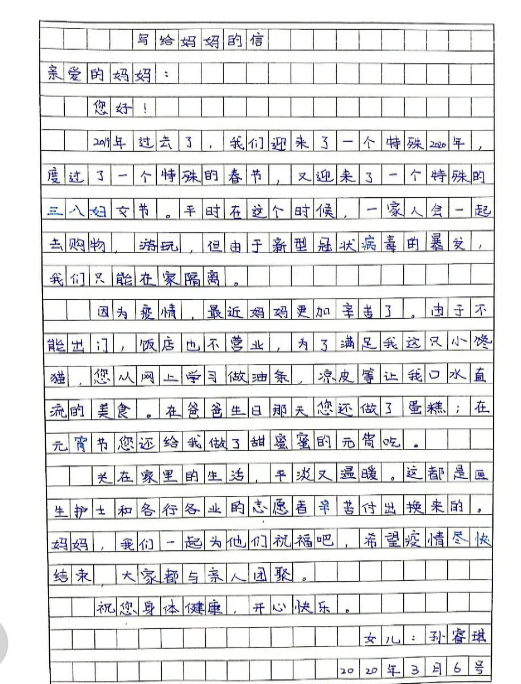 写给妈妈的信
亲爱的妈妈：
您好！
2019年过去了，我们迎来了一个特殊2020年，
度过了一个特殊的春节，又迎来了一个特殊的
三八妇女节。平时在这个时候，一家人会一起
去购物，游玩，但由于新型冠状病毒的暴发，
我们只能在家隔离。
因为疫情，最近妈妈更加辛苦了。由于不
能出门，饭店也不营业，为了满足我这只小馋
猫，您从网上学习做油条，凉皮等让我口水直
流的美食。在爸爸生日那天您还做了蛋糕；在
元宵节您还给我做了甜蜜蜜的元宵吃。
关在家里的生活，平淡又温暖。这都是医
生护士和各行各业的志愿者辛苦付出换来的。
妈妈，我们一起为他们祝福吧，希望疫情尽快
结束，大家都与亲人团聚。
祝您身体健康，开心快乐。
女儿：孙睿琪
2020年3月6号